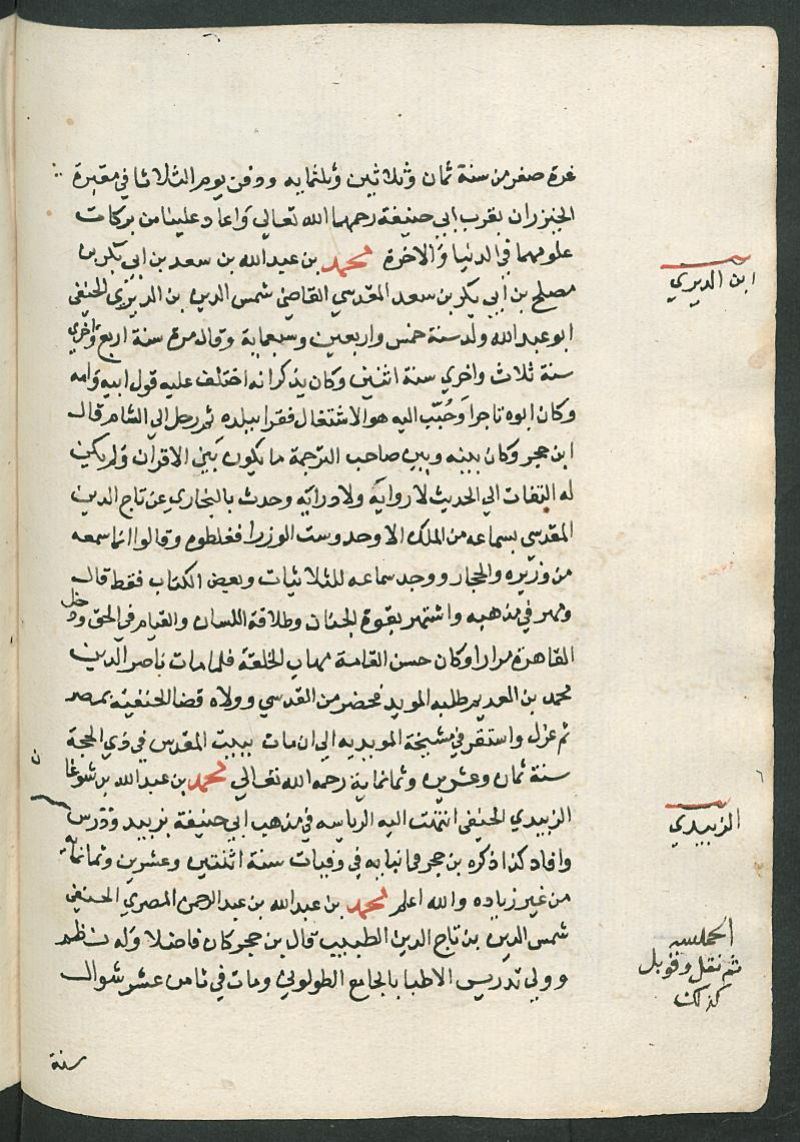 غرة صفر من سنة ثمان وثلاثين وثلثمايه ودفن يوم الثلاثا في مقبرة
الخيزران بقرب ابي حنيفة رحمهما الله تعالى واعاد علينا من بركات
علومهما في الدنيا والاخرة محمد بن عبد الله بن سعد بن ابي بكر بن
مصلح بن ابي بكر بن سعد المقدسي القاضي شمس الدين بن الديري الحنفي
ابو عبد الله ولد سنة خمس واربعين وسبعماية وقال مرة سنة اربع واخري
سنة ثلاث واخري سنة اثنين وكان يذكر انه اختلف عليه قول ابيه وامه
وكان ابوه تاجرا وحُبّب اليه هو الاشتغال فقرا ببلده ثم رحل الي الشام قال
ابن حجر وكان بينه وبين صاحب الترجمة ما يكون بين الاقران ولم يكن
له التفات الي الحديث لا رواية ولا دراية وحدث بالبخاري عن تاج الدين
المقدسي بسماعه من الملك الاوحد وست الوزرا فغلطوه وقالوا انما سمعه
من وزيره والحجار ووجد سماعه للثلاثيات وبعض الكتاب فقط قال
ومهر في مذهبه واشتهر بقوة الجنان وطلاقة اللسان والقيام في الحق ودخل
القاهرة مرارا وكان حسن القامة مهاب الخلقة فلما مات ناصر الدين
محمد بن العديم طلبه المويد فحضر من القدسي وولاه قضا الحنفية بمصر
ثم عزل واستقر في مشيخة المويديه الي ان مات ببيت المقدس في ذي الحجة
سنة ثمان وعشرين وثمانماية رحمه الله تعالى محمد بن عبد الله بن شوعا
الزبيدي الحنفي انتهت اليه الرياسه في مذهب ابي حنيفة بزبيد ودرس
وافاد كذا ذكره بن حجر في انبايه في وفيات سنة اثنتين وعشرين وثمانمايه
من غير زياده والله اعلم محمد بن عبد الله بن عبد الرحمن المصري الحنفي
شمس الدين بن تاج الدين الطبيب قال بن حجر كان فاضلا وله نظم
وولي تدريس الاطبا بالجامع الطولوني ومات في ثامن عشر شوال
سنة
ابن الديري
الزبيدي
الحمد لله
ثم نقل وقوبل
كذلك